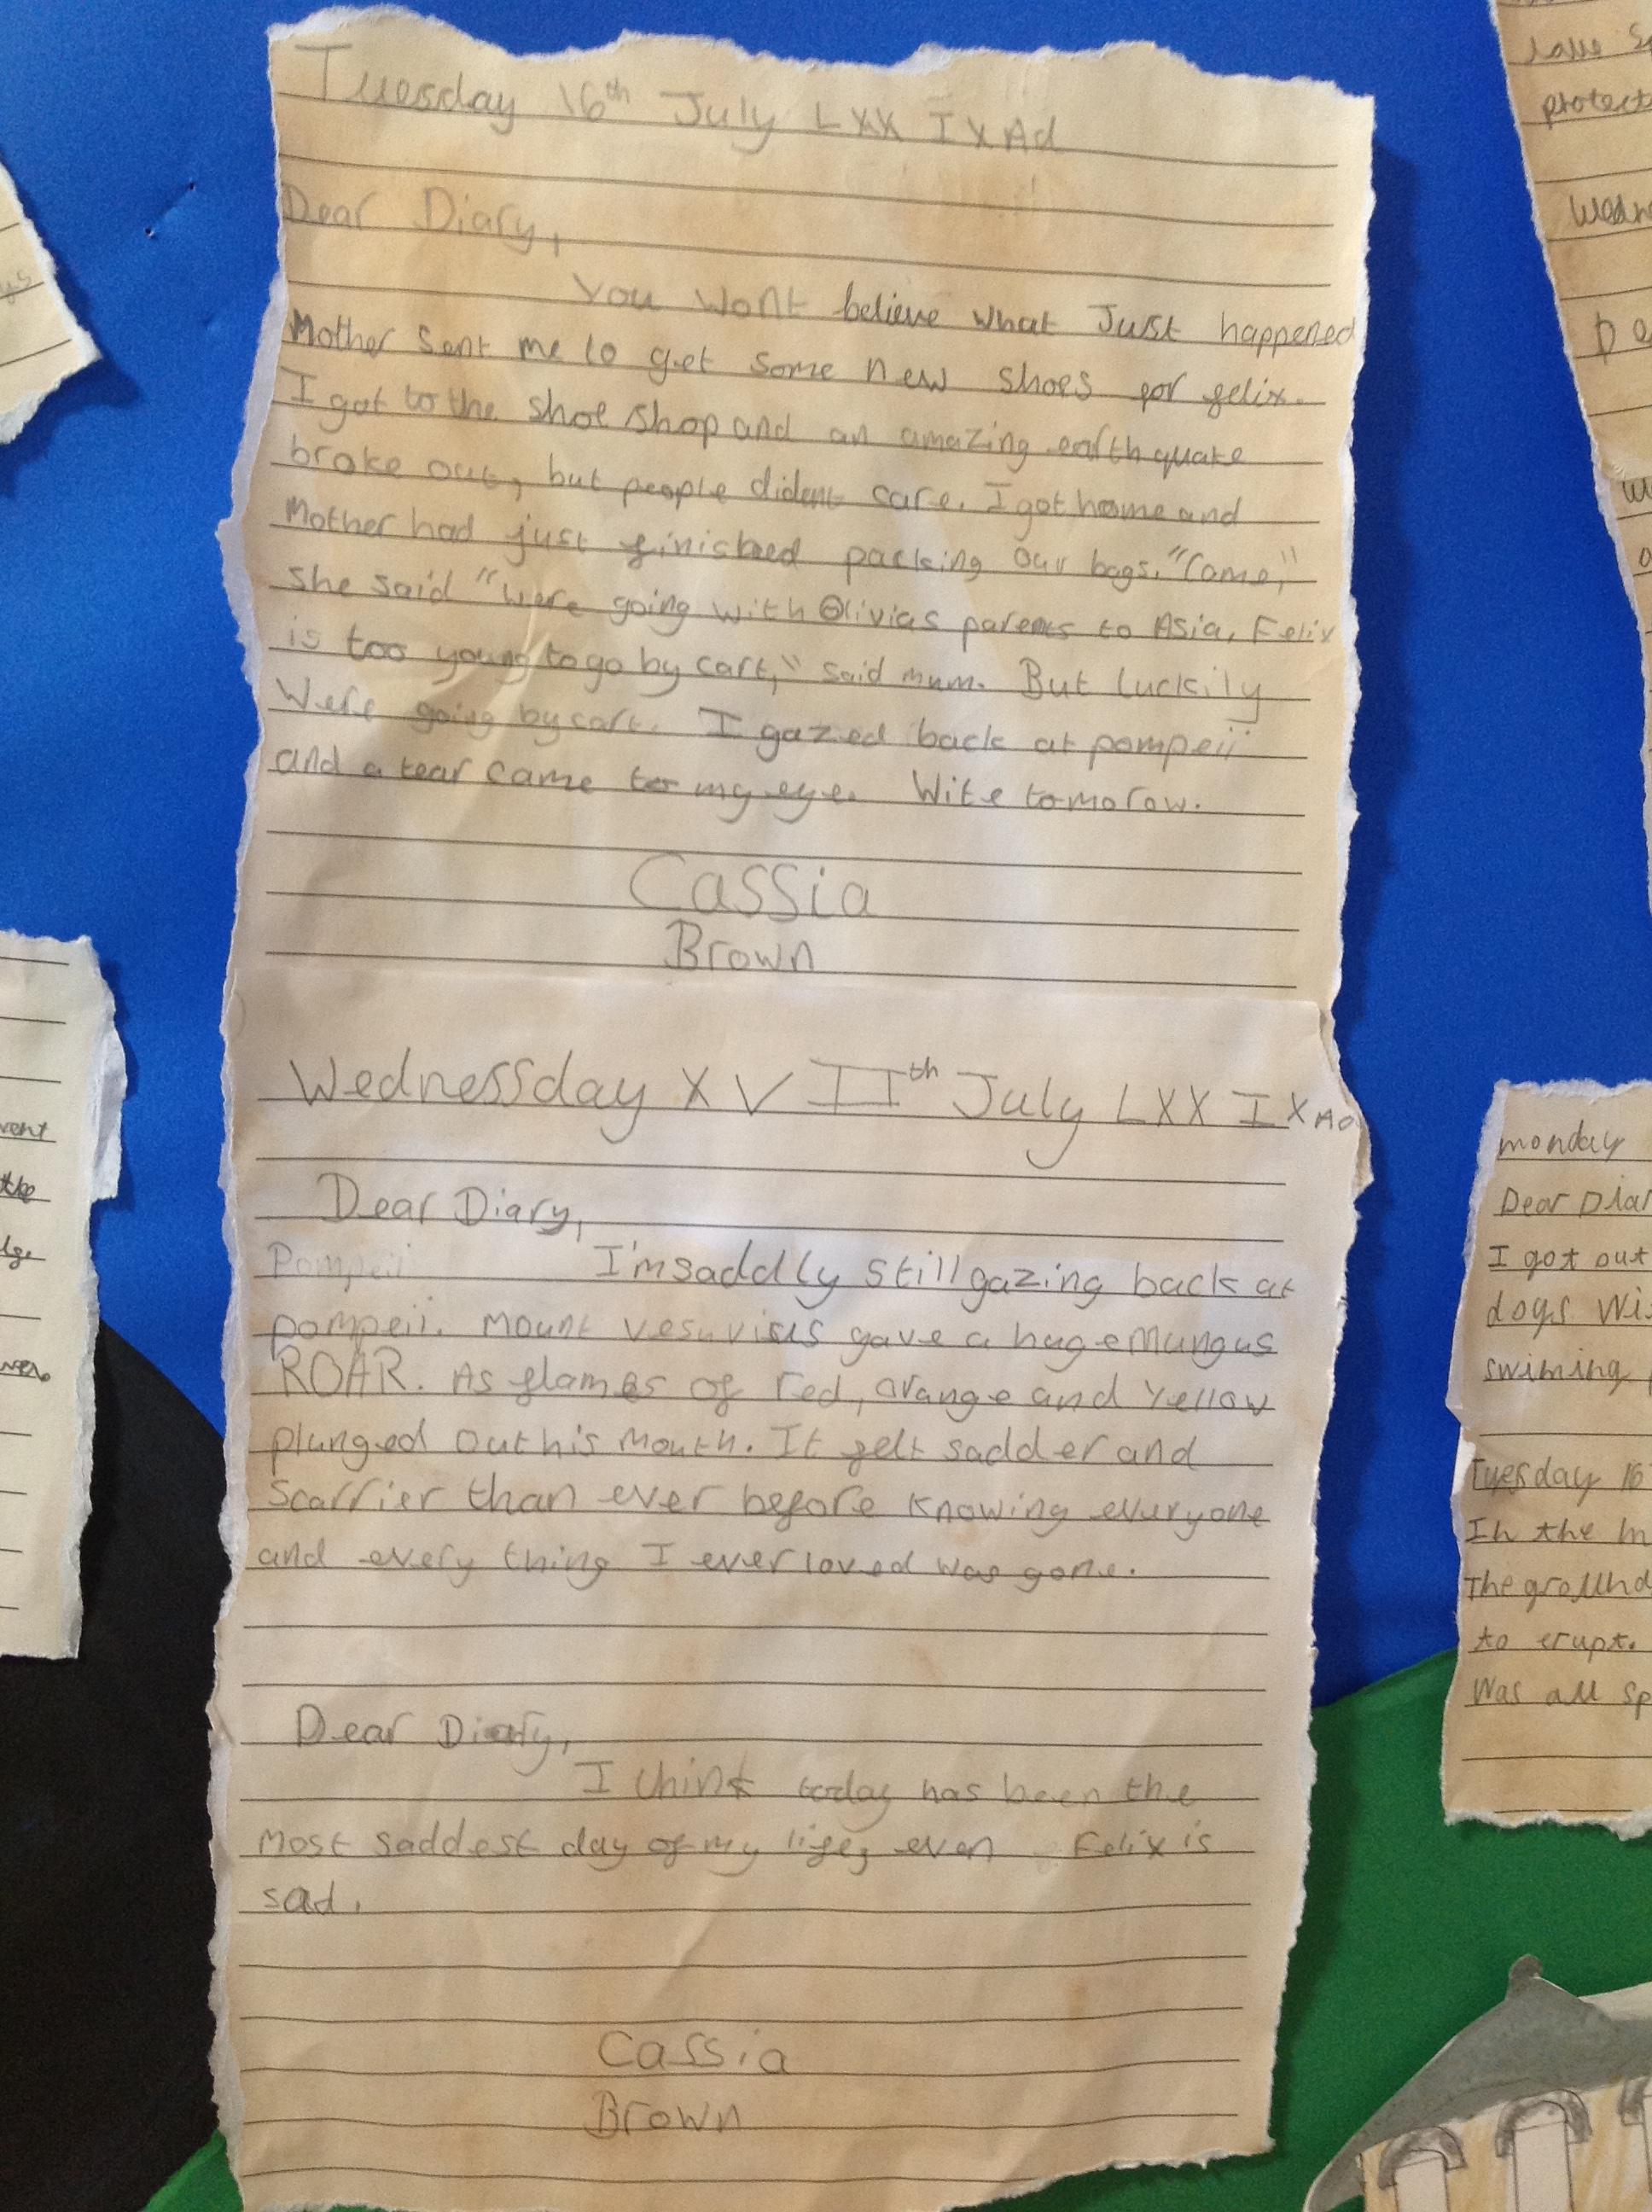 Tuesday 16th July LXX IX Ad
Dear Diary,
You wont believe what Just happened
Mother sent me to get some new shoes for felix.
I got to the shoe shop and an amazing earth quake
broke out, but people dident care. I got home and
Mother had just finished packing our bags. "Come,"
she said "were going with Olivias parents to Asia, Felix
is too young to go by cart," said mum. But luckily
were going by cart. I gazed back at pompeii
and a tear came to my eye. Wite tomorow.
Cassia
Brown
Wednessday XV IIth July LXX IX AD
Dear Diary,
Pompeii I'm saddly still gazing back at
pompeii. Mount vesuvius gave a hugemungus
ROAR. As flames of red, orange and yellow
plunged out his mouth. It felt sadder and
scarrier than ever before knowing everyone
and every thing I ever loved was gone.
Dear Diary,
I think today has been the
most saddest day of my life, even Felix is
sad.
Cassia
Brown
have
protect
Wedn
monday
Dear Diar
I got out
dogs. Wi
swiming
Tuesday 16
In the m
The ground
to erupt.
Was all sp
vent
the